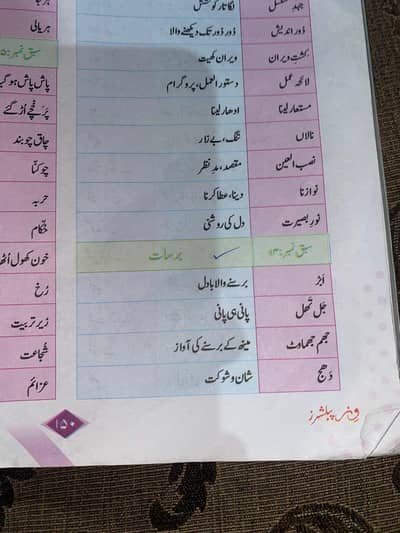 جہد مسلسل لگاتار کوشش
دور اندیش دور دور تک دیکھنے والا
کشتِ ویران ویران کھیت
لائحہ عمل دستور العمل، پروگرام
مستعار لینا ادھار لینا
نالاں تنگ، بے زار
نصب العین مقصد، مدِ نظر
نوازنا دینا، عطا کرنا
نورِ بصیرت دل کی روشنی
سبق نمبر: ۱۳ برسات
اَبر برسنے والا بادل
جَل تھَل پانی ہی پانی
جھم جھماوٹ مینھ کے برسنے کی آواز
دَھج شان و شوکت
ہریالی
سبق نمبر: ۵
پاش پاش ہو گیا
پَرخچے اُڑ گئے
چاق چوبند
چوکنّا
حربہ
حُکّام
خون کھول اُٹھ
رُخ
زیرِ تربیت
شُجاعت
عزائم
وِنر پبلشرز
۱۵۰